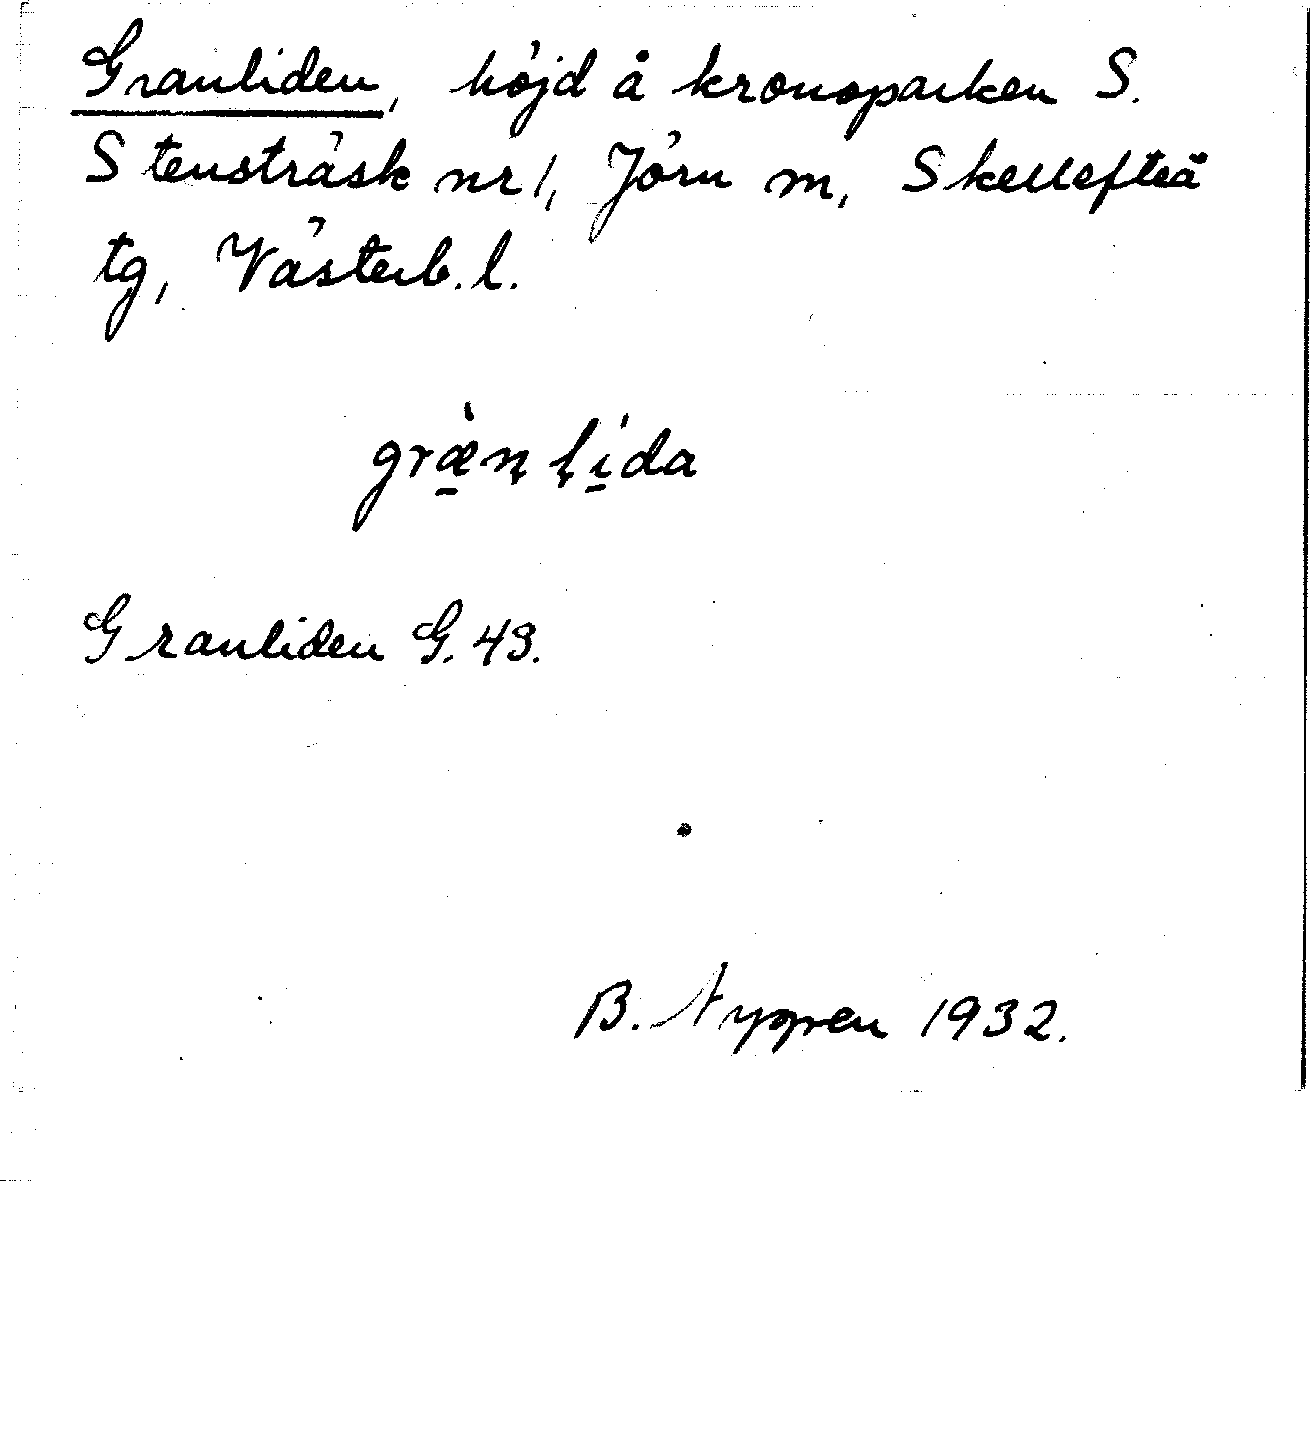 Granliden, höjd å kronoparken S.
Stensträsk nr 1, Jörn sn, Skellefteå
tg, Västerb. l.
græ̀n lída
Granliden G. 43.
B. Nygren 1932.